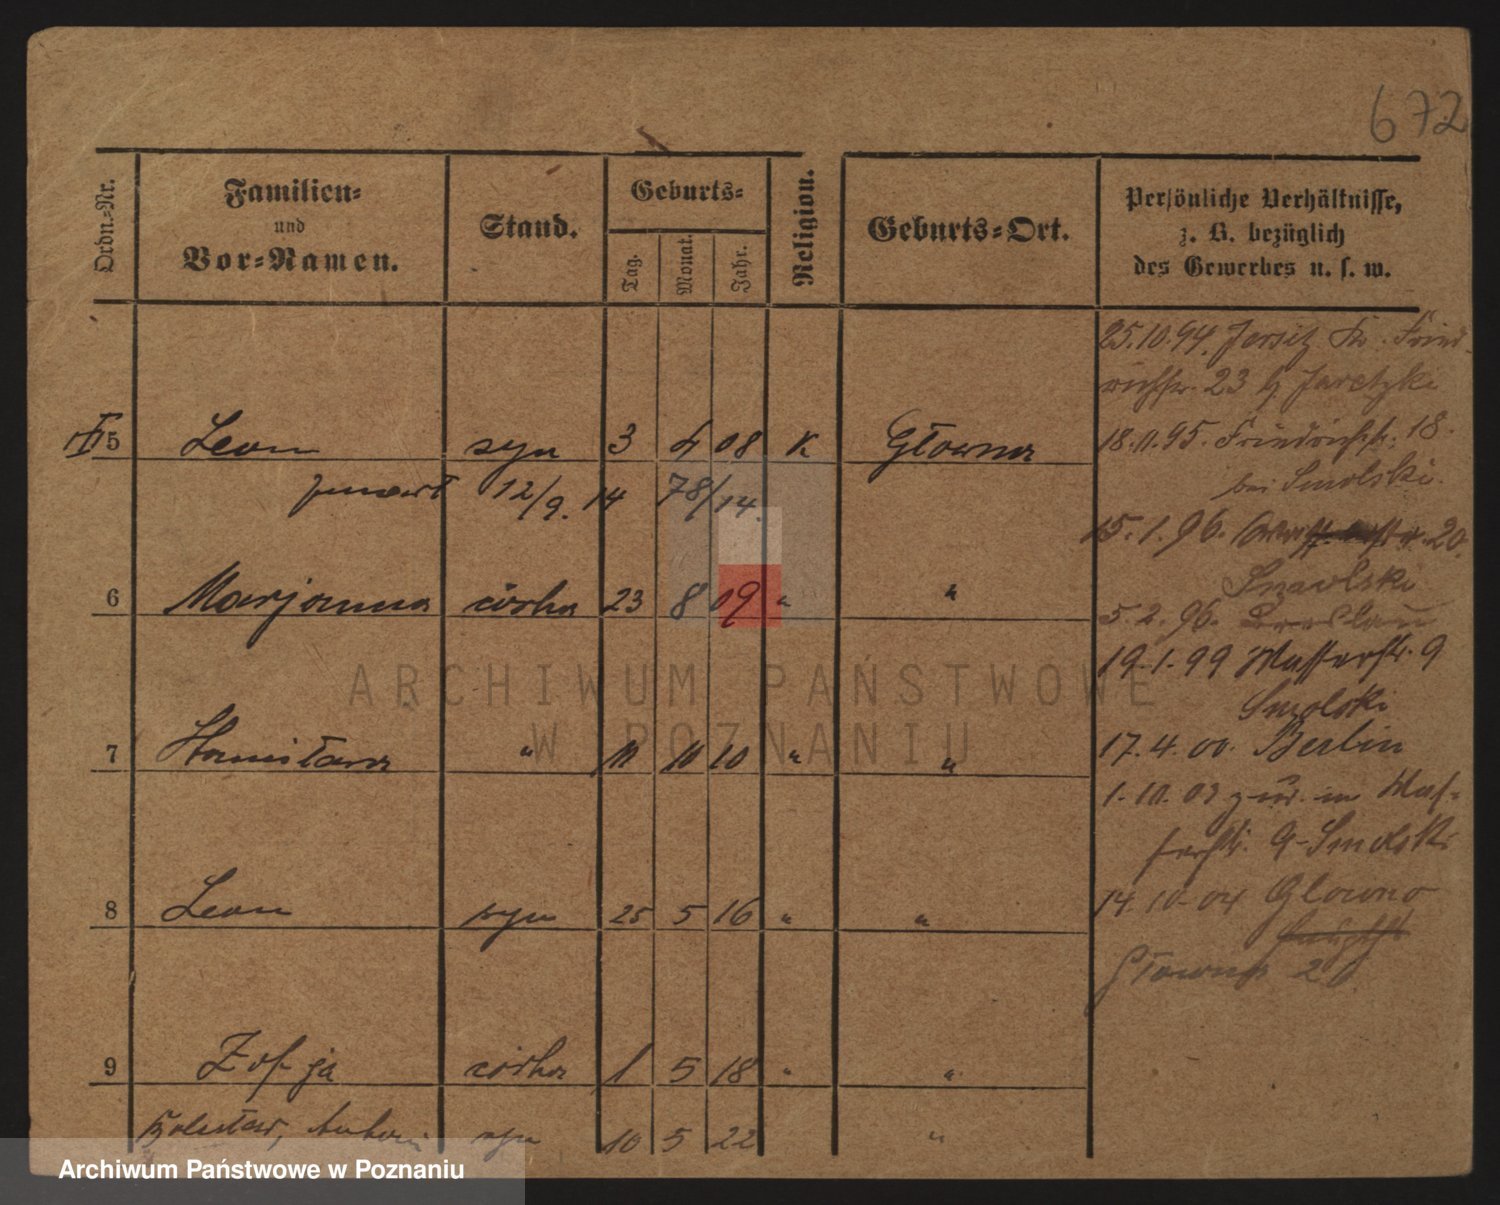 672
Ordn.-Nr.
Familien-
und
Vor-Namen.
Stand.
Geburts-
Tag.
Monat.
Jahr.
Religion.
Geburts-Ort.
Persönliche Verhältnisse,
z. B. bezüglich
des Gewerbes u. s. w.
25.10.94. Jersitz Fried-
richstr. 23 Jaretzki
5 Leon syn 3 4 08 K Głowna
18.11.95. Friedrichstr. 18.
bei Smolski.
zmarł 12/9. 14 78/14.
15.1.96. 20.
Smolski
6 Marjanna córka 23 8 09 " "
5.2.96. Breslau
19.1.99 Wasserstr. 9
Smolski
7 Stanisława " 11 10 10 " "
17.4.00. Berlin
1.10.03 zur. in Was-
serstr. 9 Smolski
8 Leon syn 25 5 16 " "
14.10.04 Glowno
Głowna 2
9 Zofja córka 1 5 18 " "
Antoni syn 10 5 22 "
ARCHIWUM PAŃSTWOWE
W POZNANIU
Archiwum Państwowe w Poznaniu